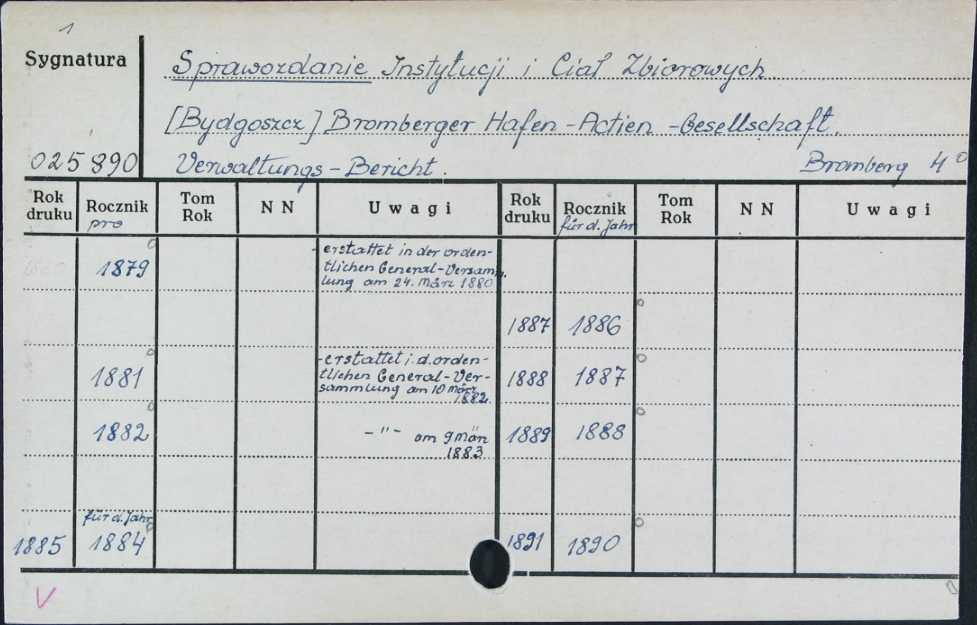 1
Sygnatura
Sprawozdanie Instytucji i Ciał Zbiorowych
[Bydgoszcz] Bromberger Hafen-Actien-Gesellschaft.
025890
Verwaltungs-Bericht.
Bromberg 4°
Rok druku Rocznik pro Tom Rok N N Uwagi Rok druku Rocznik für d. Jahr Tom Rok N N Uwagi
1879 erstattet in der orden-
tlichen General-Versamm-
lung am 24. März 1880
1887 1886
1881 -erstattet i. d. orden-
tlichen General-Ver-
sammlung am 10 März
1882
1888 1887
1882 -"- am 9 März
1883
1889 1888
für d. Jahr
1885 1884
1891 1890
V